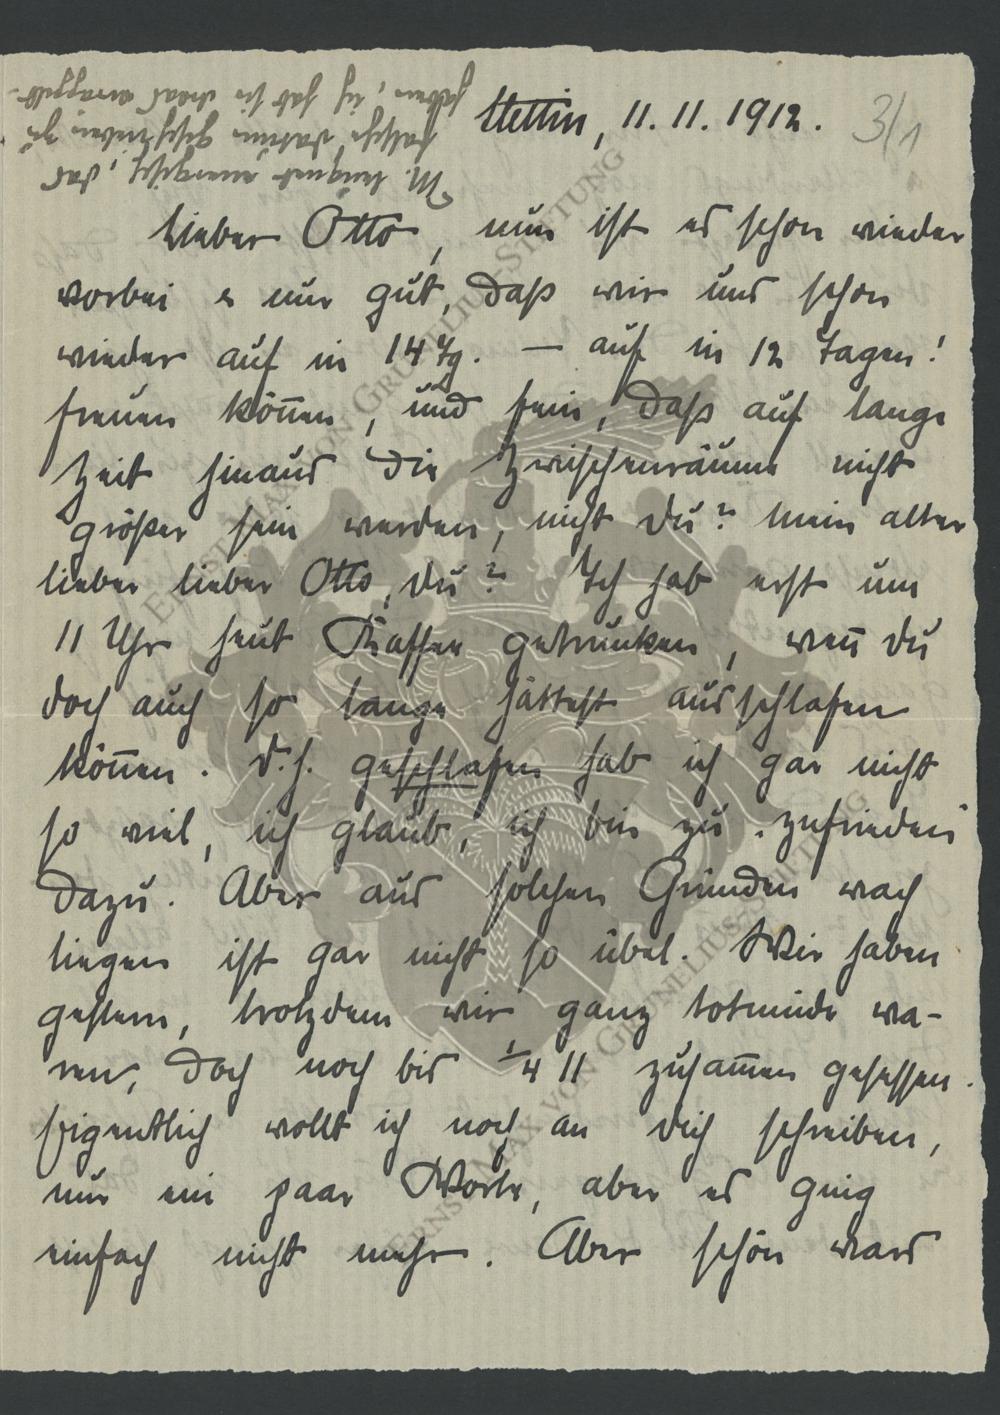 Stettin, 11. 11. 1912. 3/1
M. leugnet energisch, das
falsche Datum geschrieben zu
haben, ich hab sie drauf
Lieber Otto, nun ist es schon wieder
vorbei u nur gut, daß wir uns schon
wieder auf in 14 Tg. — auf in 12 Tagen!
freuen kön̄en, und fein, daß auf lange
Zeit hinaus die Zwischenräume nicht
größer sein werden, nicht du? mein alter
lieber lieber Otto, du? Ich hab erst um
11 Uhr heut Kaffee getrunken, wen̄ du
doch auch so lange hättest ausschlafen
kön̄en. D. h. geschlafen hab ich gar nicht
so viel, ich glaub, ich bin zu „zufrieden"
dazu. Aber aus solchen Gründen wach
liegen ist gar nicht so übel. Wir haben
gestern, trotzdem wir ganz totmüde wa-
ren, doch noch bis 1/4 11 zusam̄en gesessen.
Eigentlich wollt ich noch an dich schreiben,
nur ein paar Worte, aber es ging
einfach nicht mehr. Aber schön wars
ERNST MAX VON GRUNELIUS-STIFTUNG
ERNST MAX VON GRUNELIUS-STIFTUNG